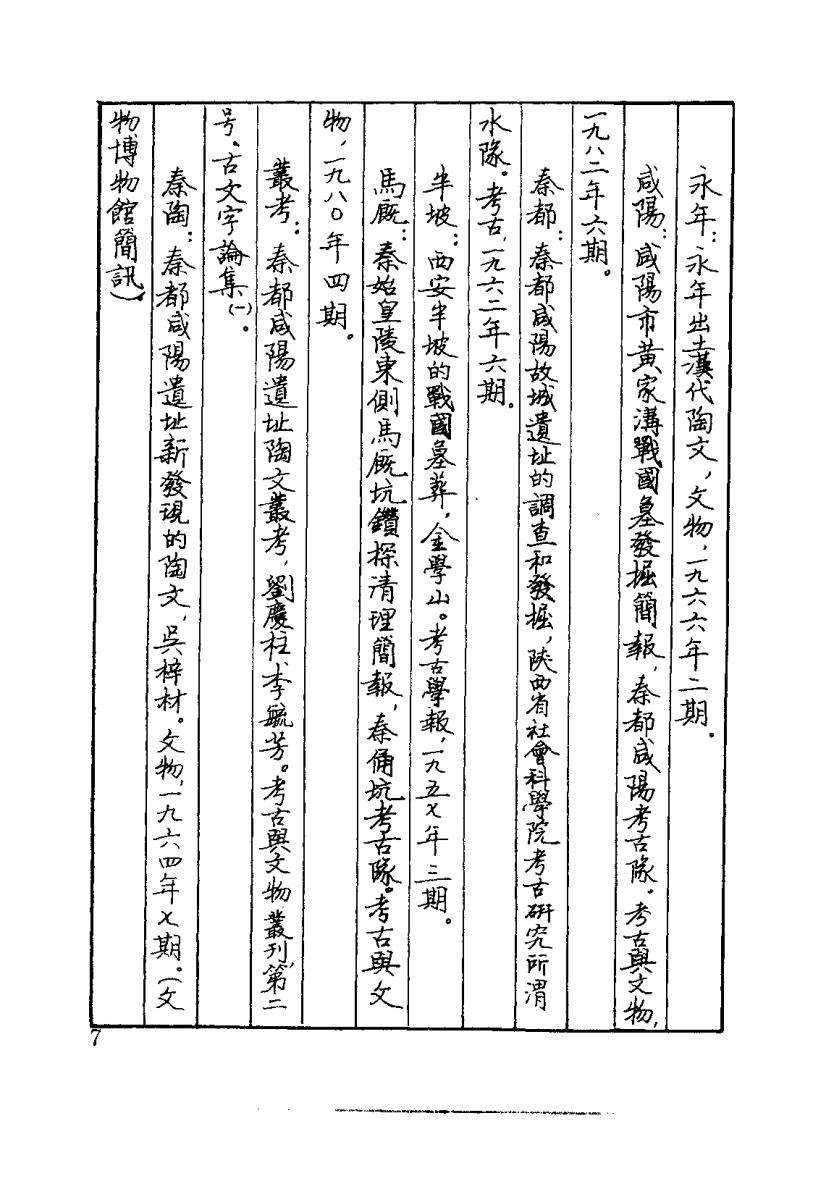 永年：永年出土漢代陶文，文物，一九六六年二期。
咸陽：咸陽市黃家溝戰國墓發掘簡報，秦都咸陽考古隊。考古與文物，
一九八二年六期。
秦都：秦都咸陽故城遺址的調查和發掘，陝西省社會科學院考古研究所渭
水隊。考古，一九六二年六期。
半坡：西安半坡的戰國墓葬，金學山。考古學報，一九五七年三期。
馬厩：秦始皇陵東側馬厩坑鑽探清理簡報，秦俑坑考古隊。考古與文
物，一九八〇年四期。
叢考：秦都咸陽遺址陶文叢考，劉慶柱、李毓芳。考古與文物叢刊，第二
号、古文字論集（一）。
秦陶：秦都咸陽遺址新發現的陶文，吳梓林。文物，一九六四年七期。（文
物博物館簡訊）
7